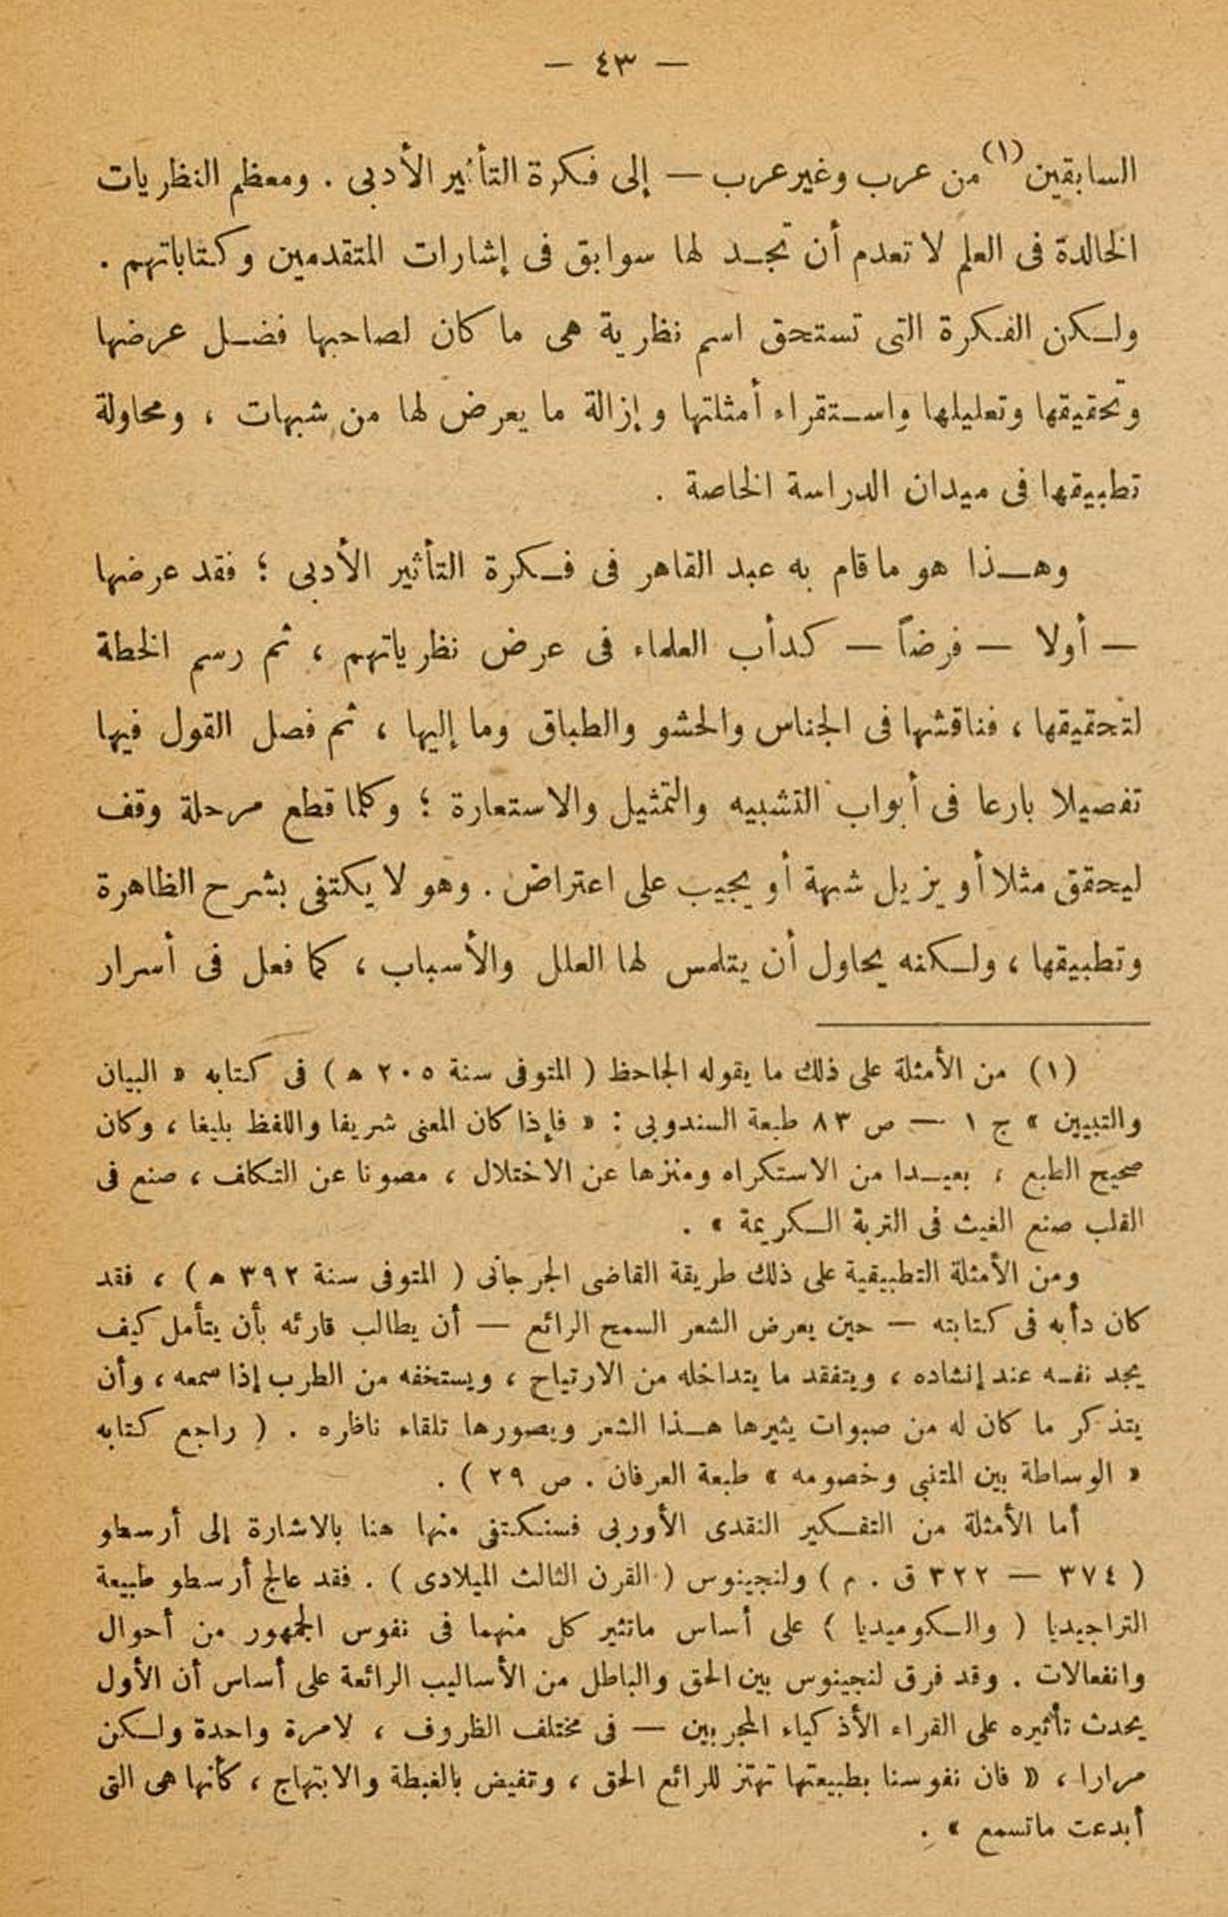 — ٤٣ —
السابقين(١) من عرب وغير عرب — إلى فكرة التأثير الأدبى . ومعظم النظريات
الخالدة فى العلم لا تعدم أن تجد لها سوابق فى إشارات المتقدمين وكتاباتهم .
ولكن الفكرة التى تستحق اسم نظرية هى ما كان لصاحبها فضل عرضها
وتحقيقها وتعليلها واستقراء أمثلتها وإزالة ما يعرض لها من شبهات ، ومحاولة
تطبيقها فى ميدان الدراسة الخاصة .
وهذا هو ما قام به عبد القاهر فى فكرة التأثير الأدبى ؛ فقد عرضها
— أولا — فرضاً — كدأب العلماء فى عرض نظرياتهم ، ثم رسم الخطة
لتحقيقها ، فناقشها فى الجناس والحشو والطباق وما إليها ، ثم فصل القول فيها
تفصيلا بارعا فى أبواب التشبيه والتمثيل والاستعارة ؛ وكلما قطع مرحلة وقف
ليحقق مثلا أو يزيل شبهة أو يجيب على اعتراض . وهو لا يكتفى بشرح الظاهرة
وتطبيقها ، ولكنه يحاول أن يتلمس لها العلل والأسباب ، كما فعل فى أسرار
(١) من الأمثلة على ذلك ما يقوله الجاحظ ( المتوفى سنة ٢٠٥ ه ) فى كتابه « البيان
والتبيين » ج ١ — ص ٨٣ طبعة السندوبى : « فإذا كان المعنى شريفا واللفظ بليغا ، وكان
صحيح الطبع ، بعيدا من الاستكراه ومنزها عن الاختلال ، مصونا عن التكلف ، صنع فى
القلب صنع الغيث فى التربة الكريمة » .
ومن الأمثلة التطبيقية على ذلك طريقة القاضى الجرجانى ( المتوفى سنة ٣٩٢ ه ) ، فقد
كان دأبه فى كتابته — حين يعرض الشعر السمح الرائع — أن يطالب قارئه بأن يتأمل كيف
يجد نفسه عند إنشاده ، ويتفقد ما يتداخله من الارتياح ، ويستخفه من الطرب إذا سمعه ، وأن
يتذكر ما كان له من صبوات يثيرها هذا الشعر ويصورها تلقاء ناظره . ( راجع كتابه
« الوساطة بين المتنبى وخصومه » طبعة العرفان . ص ٢٩ ) .
أما الأمثلة من التفكير النقدى الأوربى فسنكتفى منها هنا بالاشارة إلى أرسطو
( ٣٧٤ — ٣٢٢ ق . م ) ولنجينوس ( القرن الثالث الميلادى ) . فقد عالج أرسطو طبيعة
التراجيديا ( والكوميديا ) على أساس ماتثير كل منهما فى نفوس الجمهور من أحوال
وانفعالات . وقد فرق لنجينوس بين الحق والباطل من الأساليب الرائعة على أساس أن الأول
يحدث تأثيره على القراء الأذكياء المجربين — فى مختلف الظروف ، لا مرة واحدة ولكن
مرارا ، « فان نفوسنا بطبيعتها تهتز للرائع الحق ، وتفيض بالغبطة والابتهاج ، كأنها هى التى
أبدعت ماتسمع » .